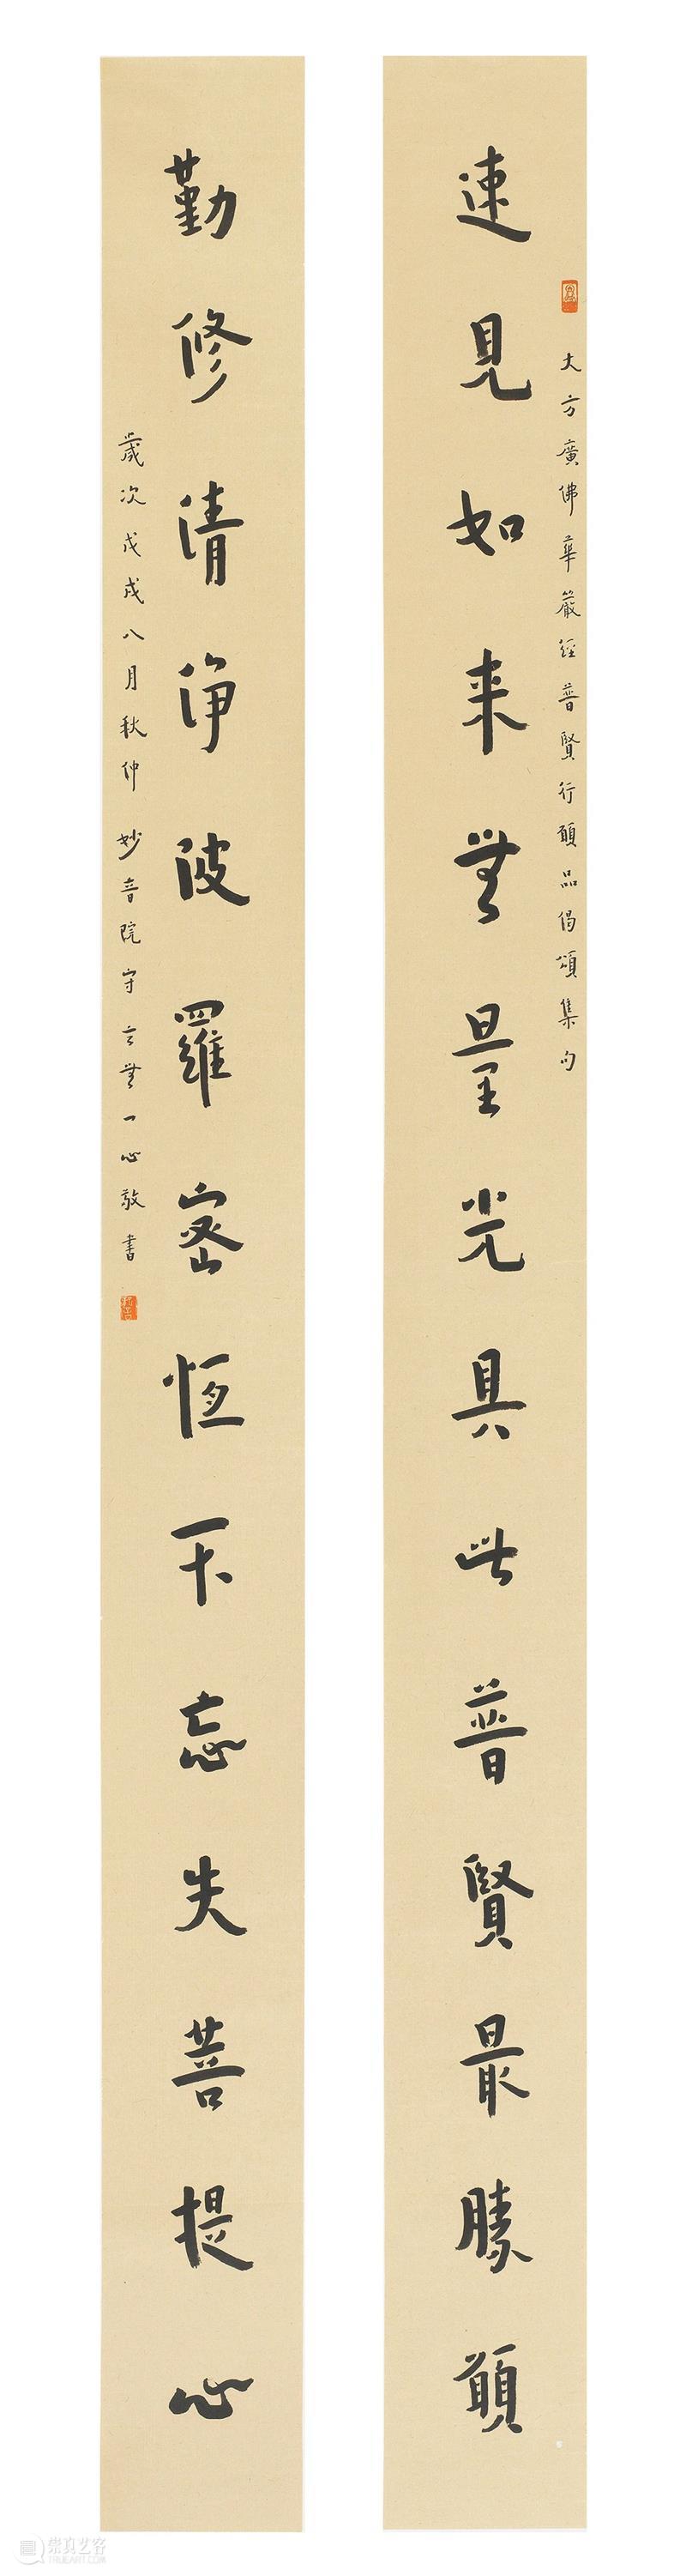 大方廣佛華嚴經普賢行願品偈頌集句
速見如来無量光具此普賢最勝願
勤修清淨波羅密恆不忘失菩提心
歲次戊戌八月秋仲 妙音院守言無一心敬書
崇真艺客
TRUEART.COM